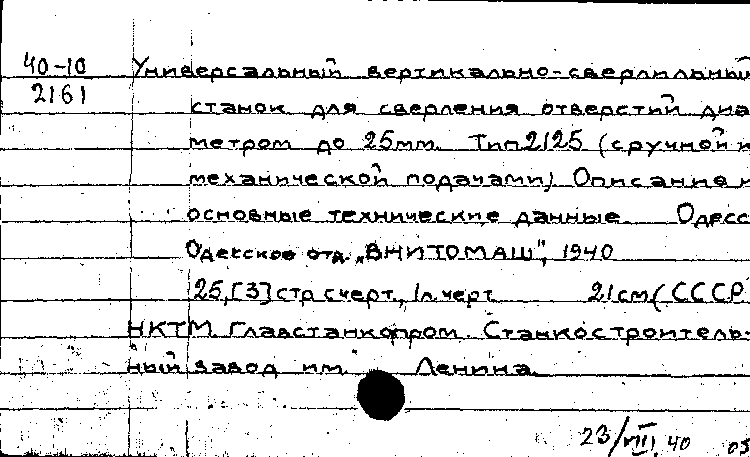 40-10 Универсальный вертикально-сверлильный
2161 станок для сверления отверстий диа
метром до 25мм. Тип 2125 (с ручной и
механической подачами). Описание и
основные технические данные. Одесс
Одесское отд. „ВНИТОМАШ", 1940
25,[3] стр с черт., 1 л. черт. 21 см (СССР
НКТМ. Главстанкопром. Станкостроитель-
ный завод им. Ленина.
23/VIII 40